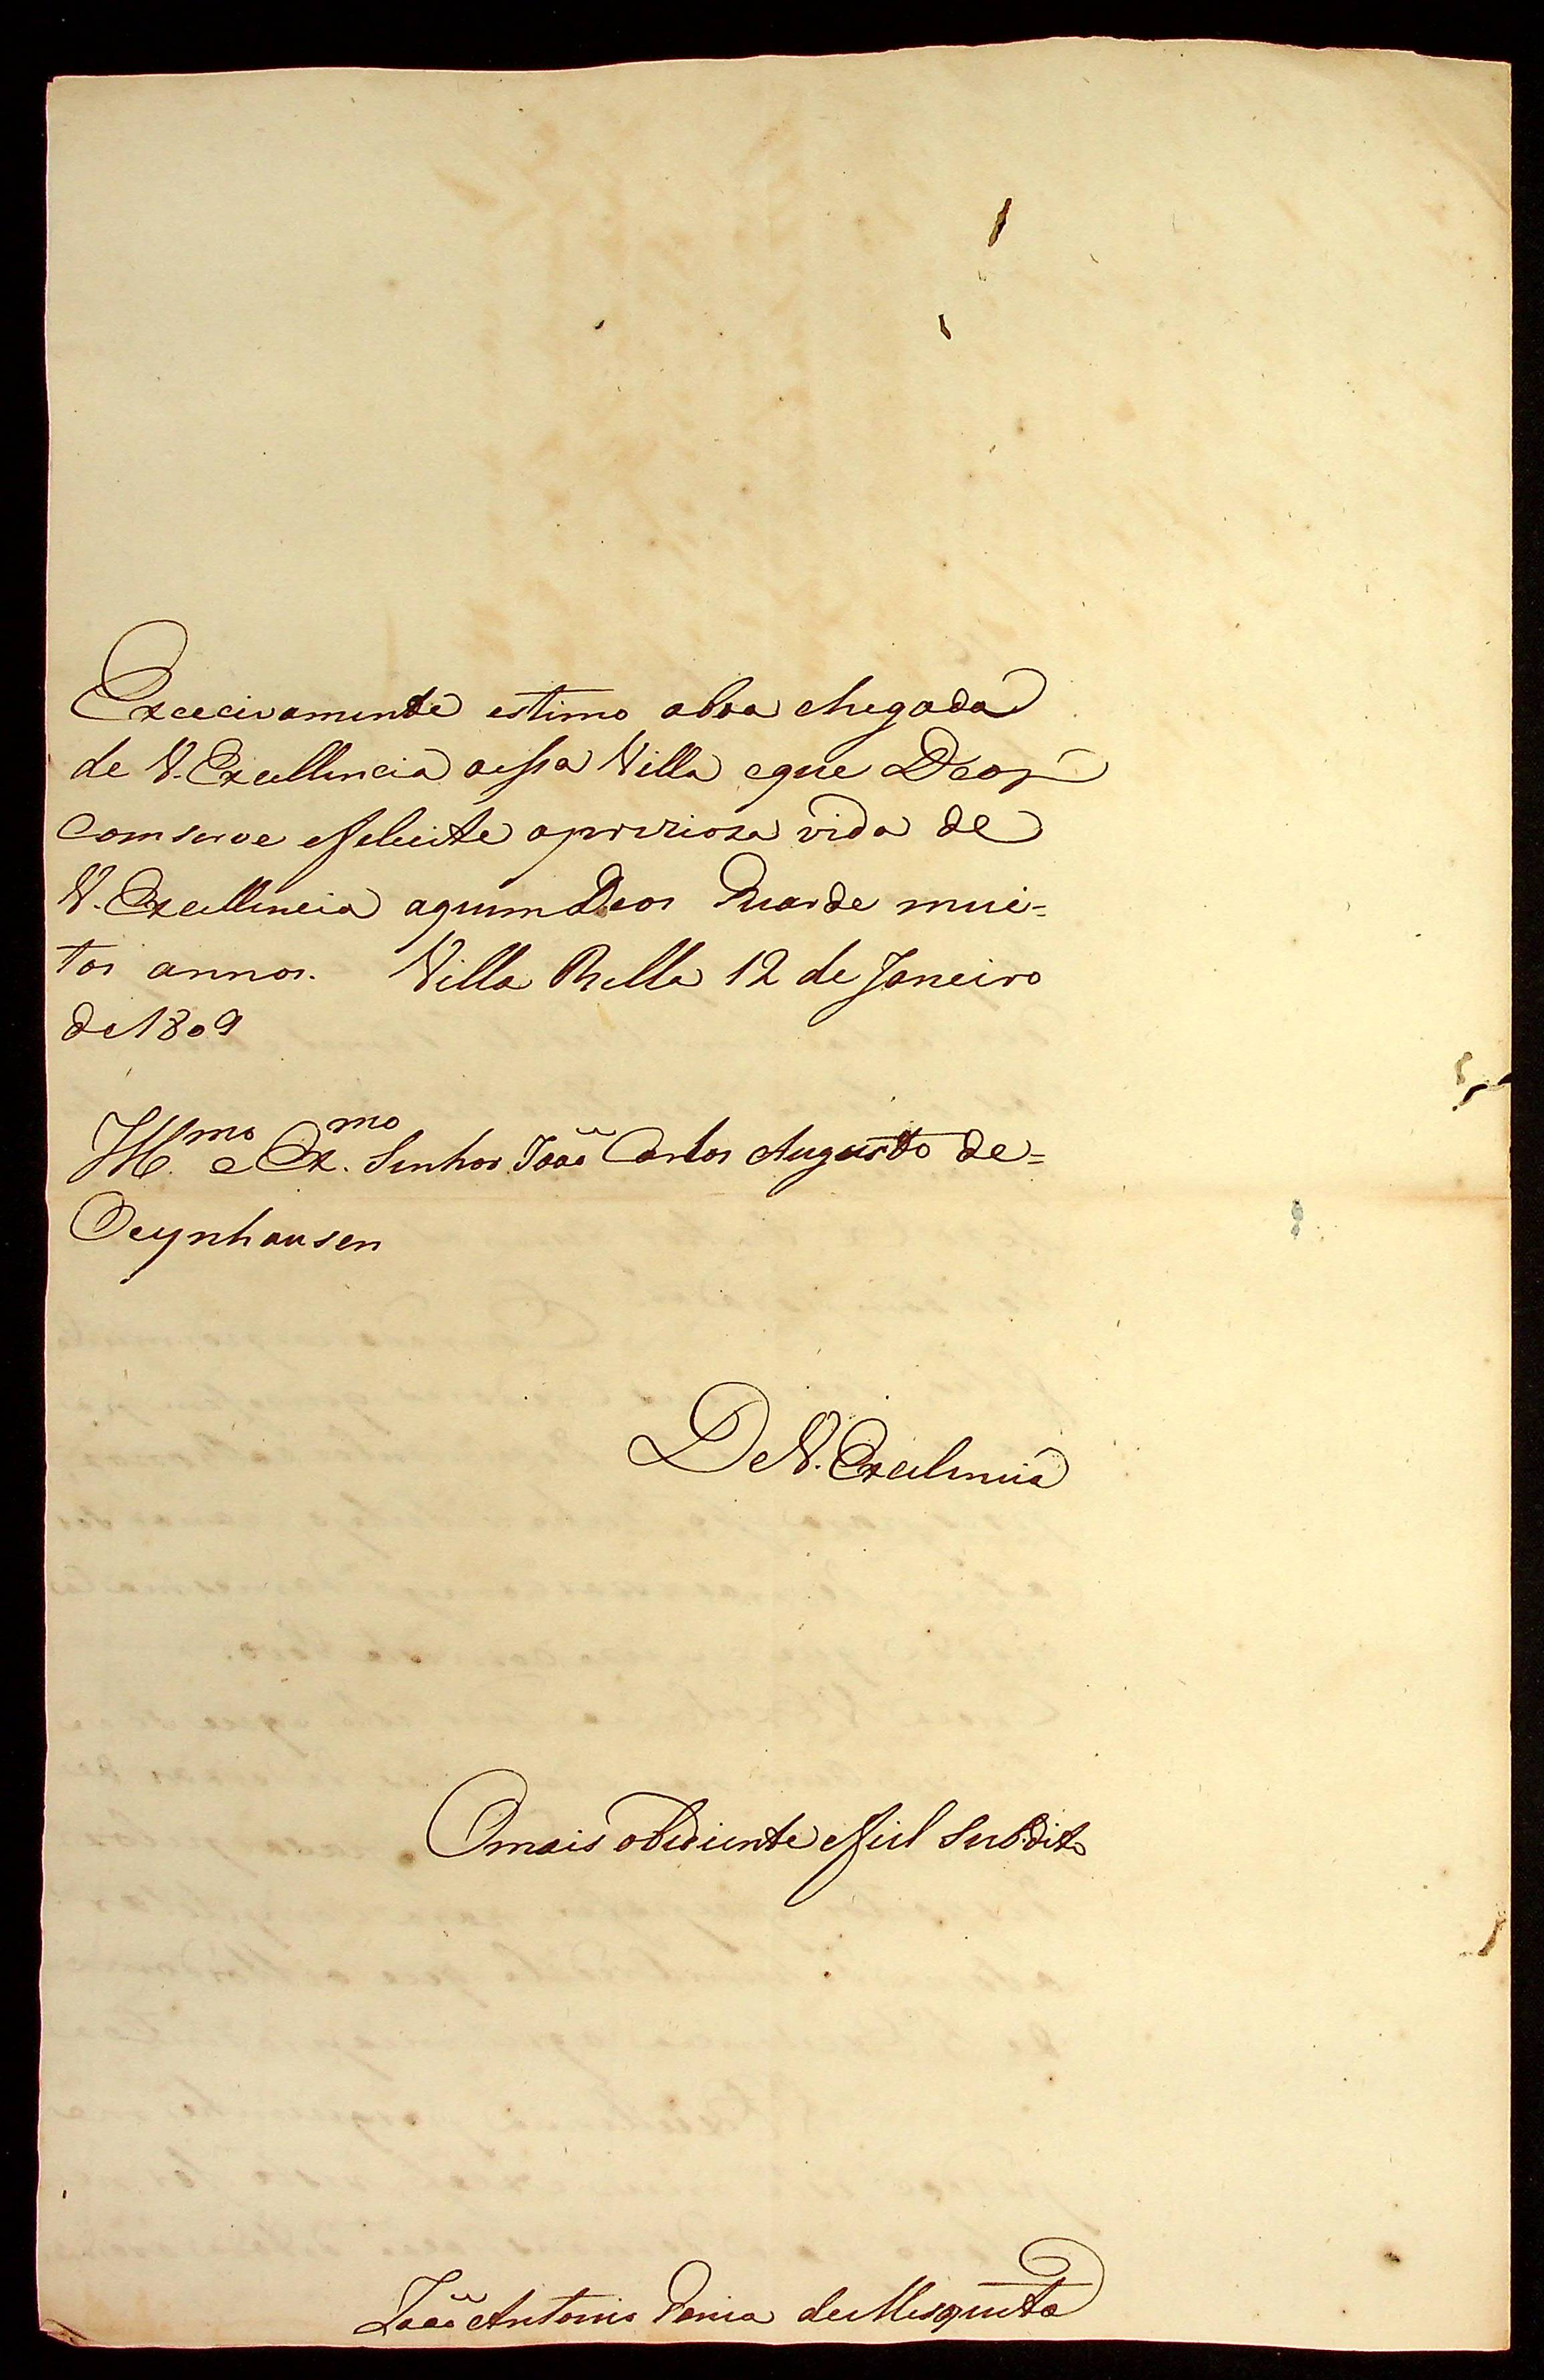 Excecivamente estimo aboa chegada
de V. Excellencia aessa Villa eque Deos
comserve efelicite apreciosa vida de
V. Excellencia aquem Deos Guarde mui=
tos annos. Villa Bella 12 de Janeiro
de 1809
Ill.mo e Ex.mo Senhor João Carlos Augusto de=
Oeynhausen
De V. Excelencia
Omais obediente efiel Subdito
João Antonio de Mesquita